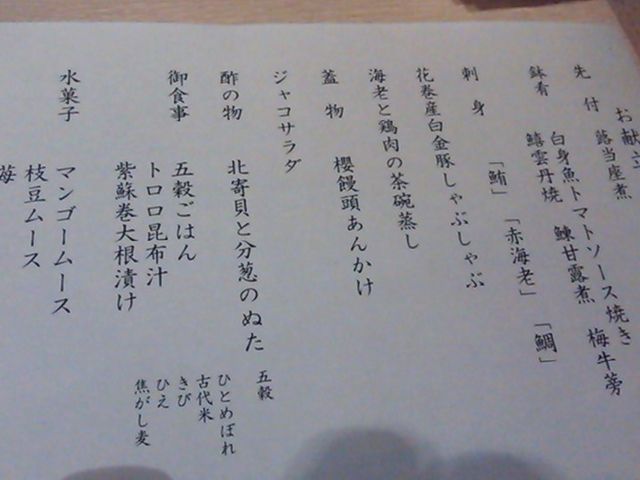 お献立
先付 蕗当座煮
白身魚トマトソース焼き 梅牛蒡
鉢肴 鱚雲丹焼 鰊甘露煮
刺身 「鮪」 「赤海老」 「鯛」
花巻産白金豚しゃぶしゃぶ
海老と鶏肉の茶碗蒸し
蓋物 櫻饅頭あんかけ
ジャコサラダ
酢の物 北寄貝と分葱のぬた
御食事 五穀ごはん
トロロ昆布汁
紫蘇巻大根漬け
五穀
ひとめぼれ
古代米
きび
ひえ
焦がし麦
水菓子 マンゴームース
枝豆ムース
苺